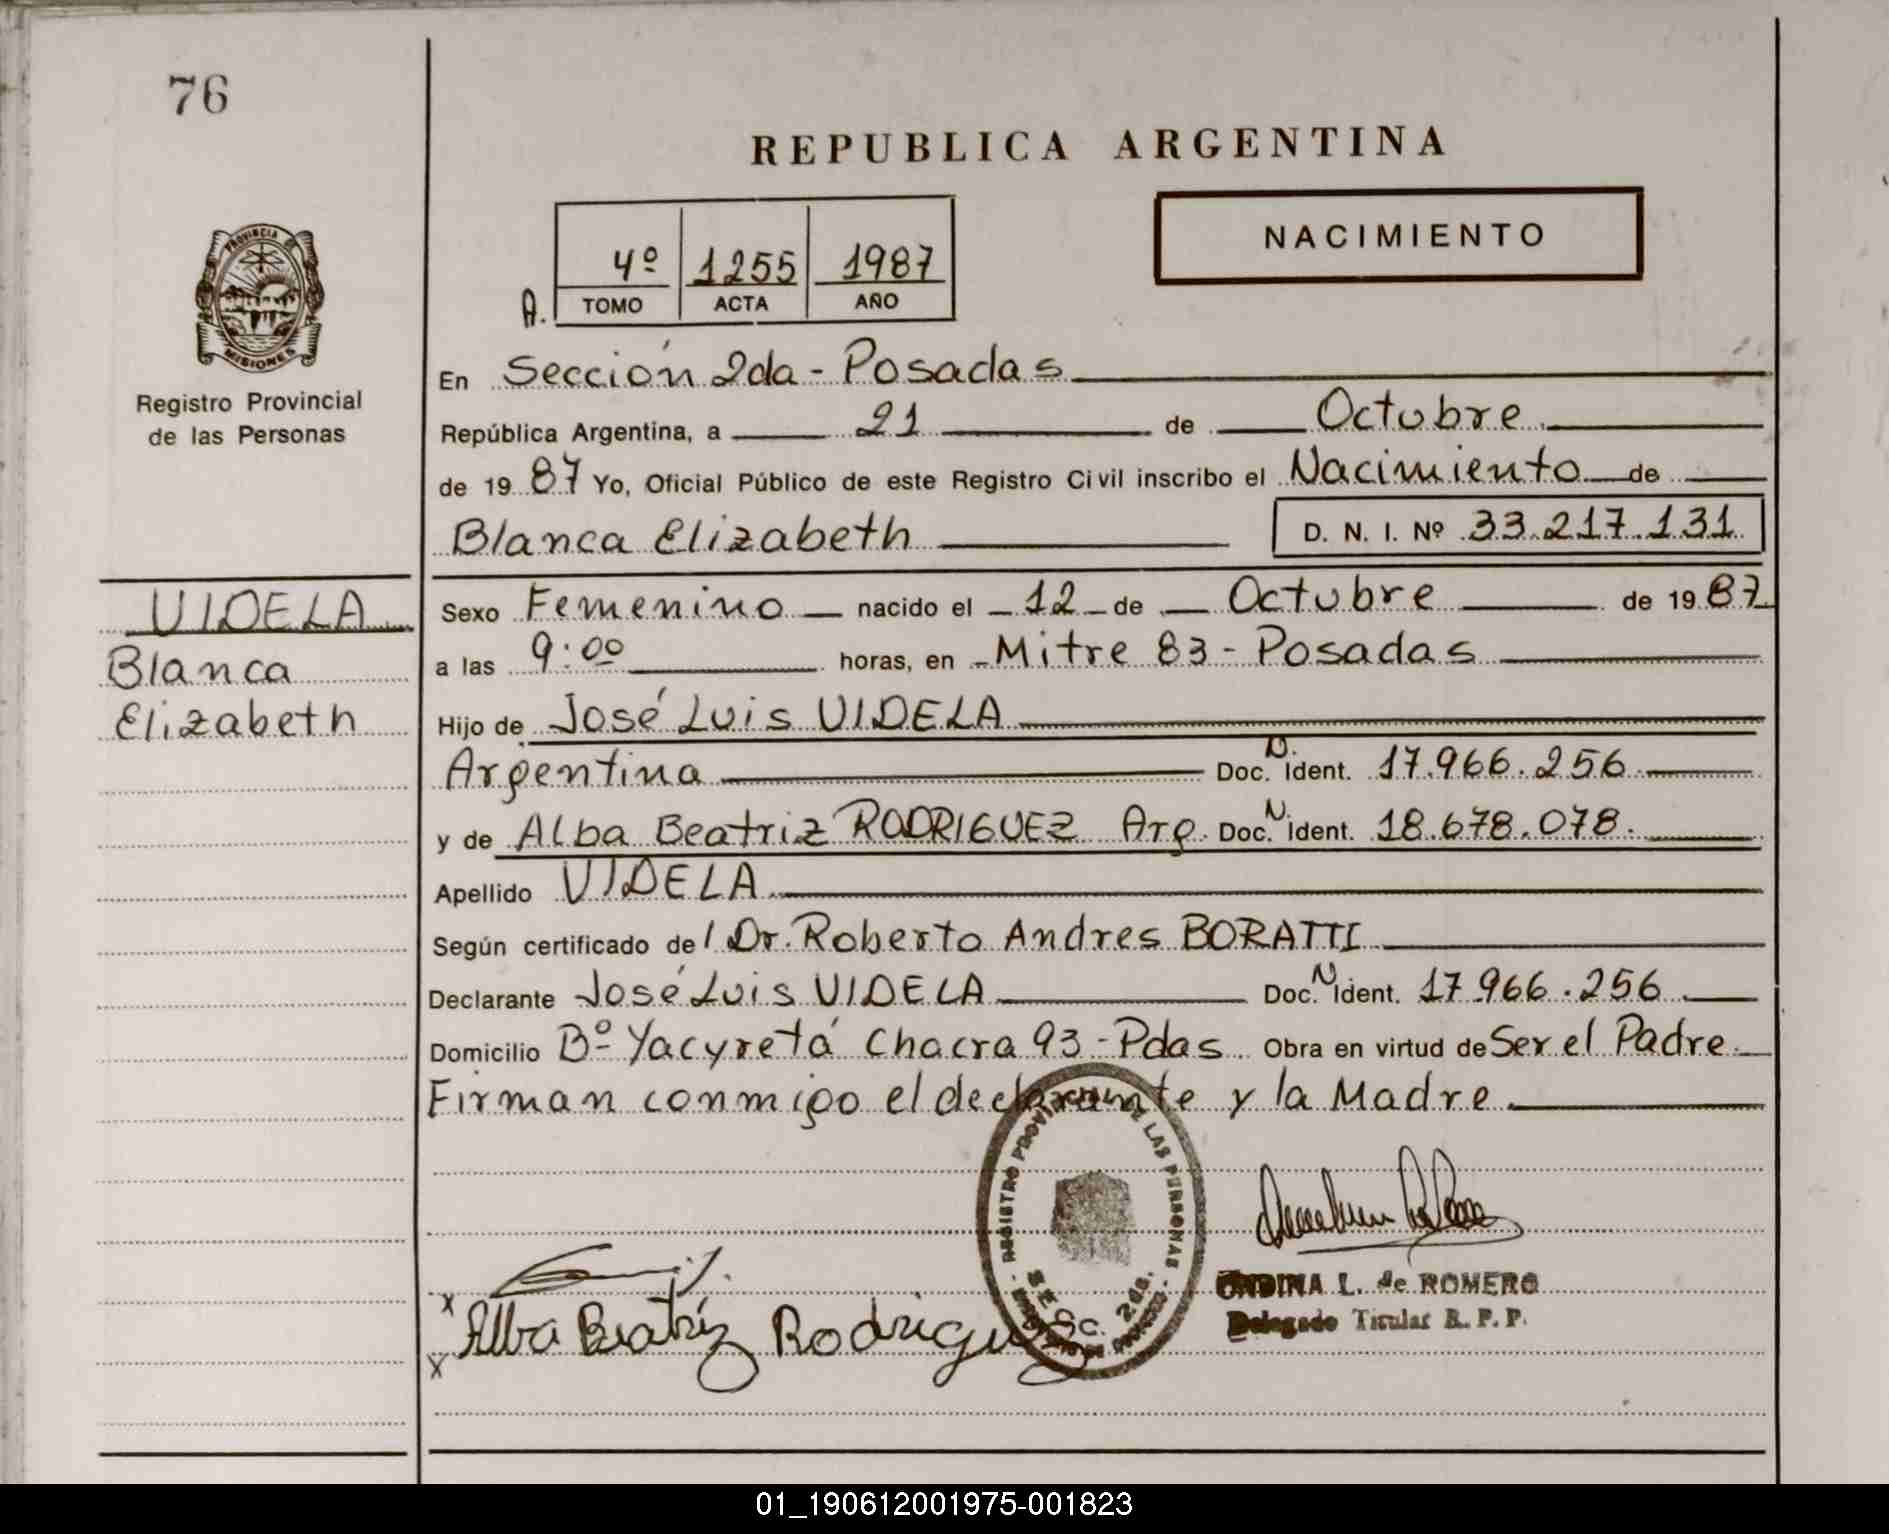 76
REPUBLICA ARGENTINA
NACIMIENTO
4º 1255 1987
A. TOMO ACTA AÑO
PROVINCIA DE
MISIONES
Registro Provincial
de las Personas
En Sección 2da - Posadas
República Argentina, a 21 de Octubre
de 19 87 Yo, Oficial Público de este Registro Civil inscribo el Nacimiento de
Blanca Elizabeth D. N. I. Nº 33.217.131
VIDELA
Blanca
Elizabeth
Sexo Femenino nacido el 12 de Octubre de 19 87
a las 9:00 horas, en Mitre 83 - Posadas
Hijo de José Luis VIDELA
Argentina Doc. N. Ident. 17.966.256
y de Alba Beatriz RODRIGUEZ Arg. Doc. N. Ident. 18.678.078.
Apellido VIDELA
Según certificado del Dr. Roberto Andres BORATTI
Declarante José Luis VIDELA Doc. N Ident. 17.966.256
Domicilio Bº Yacyretá Chacra 93 - Pdas Obra en virtud de Ser el Padre
Firman conmigo el declarante y la Madre
REGISTRO PROVINCIAL DE LAS PERSONAS
SECC. 2da.
ONDINA L. de ROMERO
Delegado Titular R. P. P.
x
x Alba Beatriz Rodriguez
01_190612001975-001823